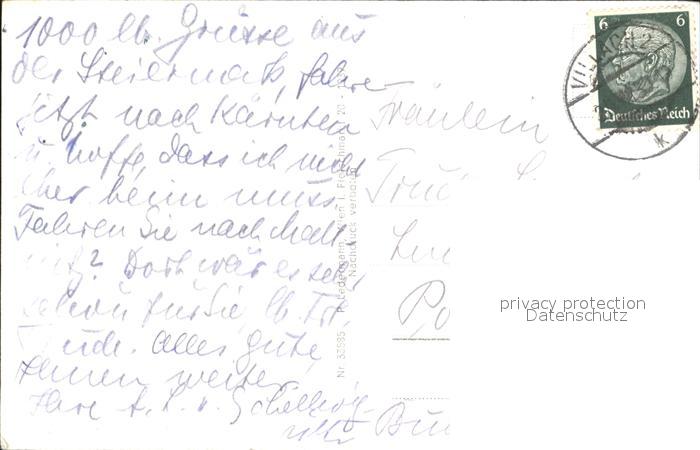 1000 lb. Grüsse aus
der Steiermark, fahre
jetzt nach Kärnten
u. hoffe, dass ich nicht
eher heim muss.
Fahren Sie nach Mall
nitz? Dort wär es sehr
schön für Sie, lb. Frl.
Trude. Alles Gute
Ihnen weiter
Ihre
Fräulein
Trud
Po
6 6
Deutsches Reich
VILLACH 2
Nr. 33985 P. Ledermann, Wien I, Fleischmarkt 20
Nachdruck verboten
privacy protection
Datenschutz